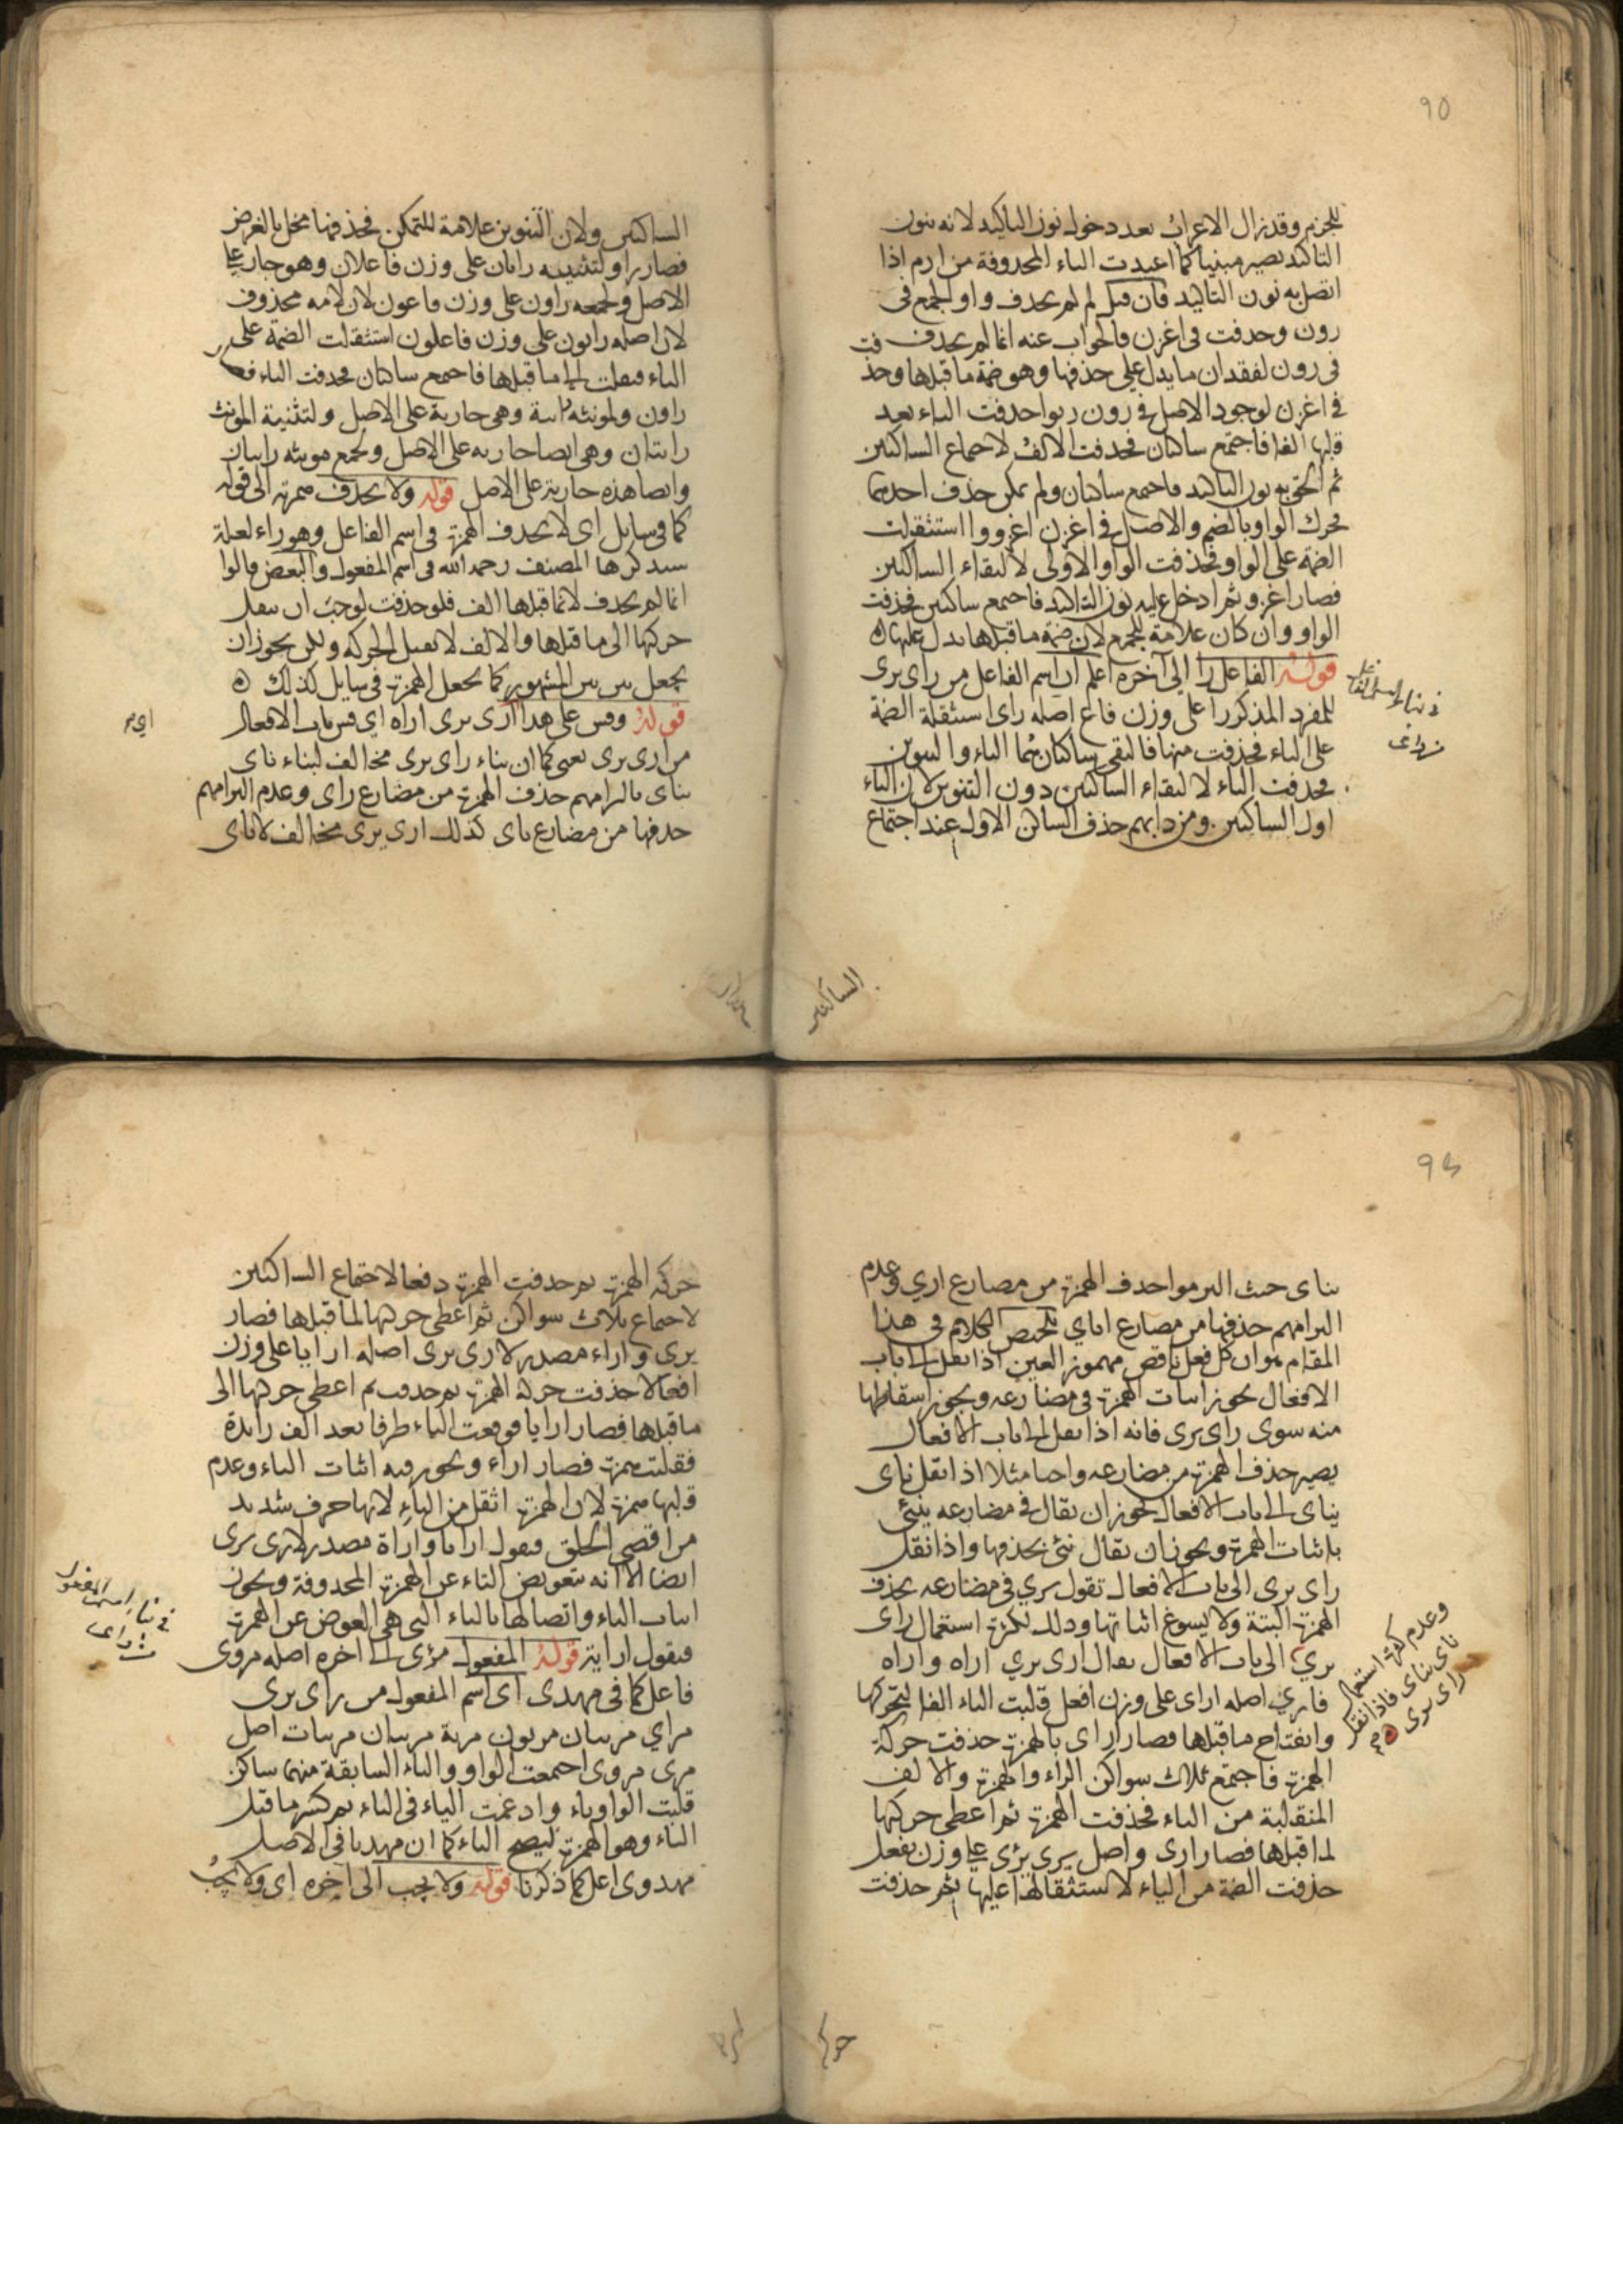 ٩٥
للجزم وقد زال الاعراب بعد دخول نون التاكيد لانه بنون
التاكيد يصير مبنيا كما اعيدت الياء المحذوفة من ارم اذا
اتصل به نون التاكيد فان قيل لم لم يحذف واو الجمع في
رون وحذفت في اغزن فالجواب عنه انما لم يحذف
في رون لفقدان ما يدل على حذفها وهو ضمة ما قبلها وحذفت
في اغزن لوجود الاصل في رون ريوا حذفت الياء بعد
قلبها الفا فاجتمع ساكنان فحذفت الالف لاجتماع الساكنين
ثم الحق به نون التاكيد فاجتمع ساكنان ولم يمكن حذف احدهما
فحرك الواو بالضم والاصل في اغزن اغزووا استثقلت
الضمة على الواو فحذفت الواو الاولى لالتقاء الساكنين
فصار اغزو ثم ادخل عليه نون التاكيد فاجتمع ساكنين فحذفت
الواو وان كان علامة للجزم لان ضمة ما قبلها يدل عليها ه
قوله الفاعل را الى آخره اعلم ان اسم الفاعل من راى يرى
للمفرد المذكر را على وزن فاع اصله راى استثقلة الضمة
على الياء فحذفت منها فالتقى ساكنان هما الياء والتنوين
فحذفت الياء لالتقاء الساكنين دون التنوين لان الياء
اول الساكنين ومن دابهم حذف الساكن الاول عند اجتماع
الساكنين
الساكنين ولان التنوين علامة للتمكن فحذفها مخل بالغرض
فصار را ولتثنيته رايان على وزن فاعلان وهو جار على
الاصل ولجمعه راون على وزن فاعون لان لامه محذوف
لان اصله رايون على وزن فاعلون استثقلت الضمة على
الياء فنقلت الى ما قبلها فاجتمع ساكنان فحذفت الياء فصار
راون ولمونثه راية وهي جارية على الاصل ولتثنية المونث
رايتان وهي ايضا جارية على الاصل ولجمع مونثه رايات
وايضا هذه جارية على الاصل قوله ولا يحذف همزته الى قوله
كما في سايل اى لا يحذف الهمزة في اسم الفاعل وهو راء لعلة
سيذكرها المصنف رحمه الله في اسم المفعول والبعض قالوا
انما لم يحذف لان ما قبلها الف فلو حذفت لوجب ان ينقل
حركتها الى ما قبلها والالف لا تقبل الحركة ولكن يجوز ان
يجعل بين بين المشهور كما يجعل الهمزة في سايل كذلك ه
قوله وقس على هذا ارى يرى اراه اى قس باب الافعال
من ارى يرى يعنى كما ان بناء راى يرى مخالف لبناء ناى
يناى بالزامهم حذف الهمزة من مضارع راى وعدم الزامهم
حذفها من مضارع ناى كذلك ارى يرى مخالف لاناى
يناى حيث التزموا حذف الهمزة من مضارع ارى وعدم
التزامهم حذفها من مضارع اناى تلخيص الكلام في هذا
المقام هو ان كل فعل ناقص مهموز العين اذا نقل الى باب
الافعال يجوز اثبات الهمزة في مضارعه ويجوز اسقاطها
منه سوى راى يرى فانه اذا نقل الى باب الافعال
يصير حذف الهمزة من مضارعه واجبا مثلا اذا نقل ناى
يناى الى باب الافعال يجوز ان يقال في مضارعه ينئى
باثبات الهمزة ويجوز ان يقال ننى بحذفها واذا نقل
راى يرى الى باب الافعال تقول يرى في مضارعه بحذف
الهمزة البتة ولا يسوغ اثباتها وذلك لكثرة استعمال راى
يرى الى باب الافعال يقال ارى يرى اراه واراه
فارى اصله اراى على وزن افعل قلبت الياء الفا لتحركها
وانفتاح ما قبلها فصار اراى بالهمزة حذفت حركة
الهمزة فاجتمع ثلاث سواكن الراء والهمزة والالف
المنقلبة من الياء فحذفت الهمزة ثم اعطى حركتها
لما قبلها فصار ارى واصل يرى يرئى على وزن يفعل
حذفت الضمة من الياء لاستثقالها عليها ثم حذفت
وعدم كثرة استعمال
ناى يناى فاذا نقل
راى يرى
حركة
حركة الهمزة ثم حذفت الهمزة دفعا لاجتماع الساكنين
لاجتماع ثلاث سواكن ثم اعطى حركتها لما قبلها فصار
يرى واراء مصدر لارى يرى اصله ارايا على وزن
افعالا حذفت حركة الهمزة ثم حذفت ثم اعطى حركتها الى
ما قبلها فصار ارايا فوقعت الياء طرفا بعد الف زايدة
فقلبت همزة فصار اراء ويجوز فيه اثبات الياء وعدم
قلبها همزة لان الهمزة اثقل من الياء لانها حرف شديد
من اقصى الحلق فيقول ارايا واراة مصدر لارى يرى
ايضا الا انه بتعويض التاء عن الهمزة المحذوفة ويجوز
اثبات الياء واتصالها بالتاء التى هي العوض عن الهمزة
فيقول اراية قوله المفعول مرئى الى اخره اصله مروى
فاعل كما في مهدى اى اسم المفعول من راى يرى
قلبت الواو ياء وادغمت الياء في الياء ثم كسر ما قبل
الياء وهو الهمزة ليصح الياء كما ان مهديا في الاصل
مهدوى اعل كما ذكرنا قوله ولا يجب الى اخره اى ولا يجب